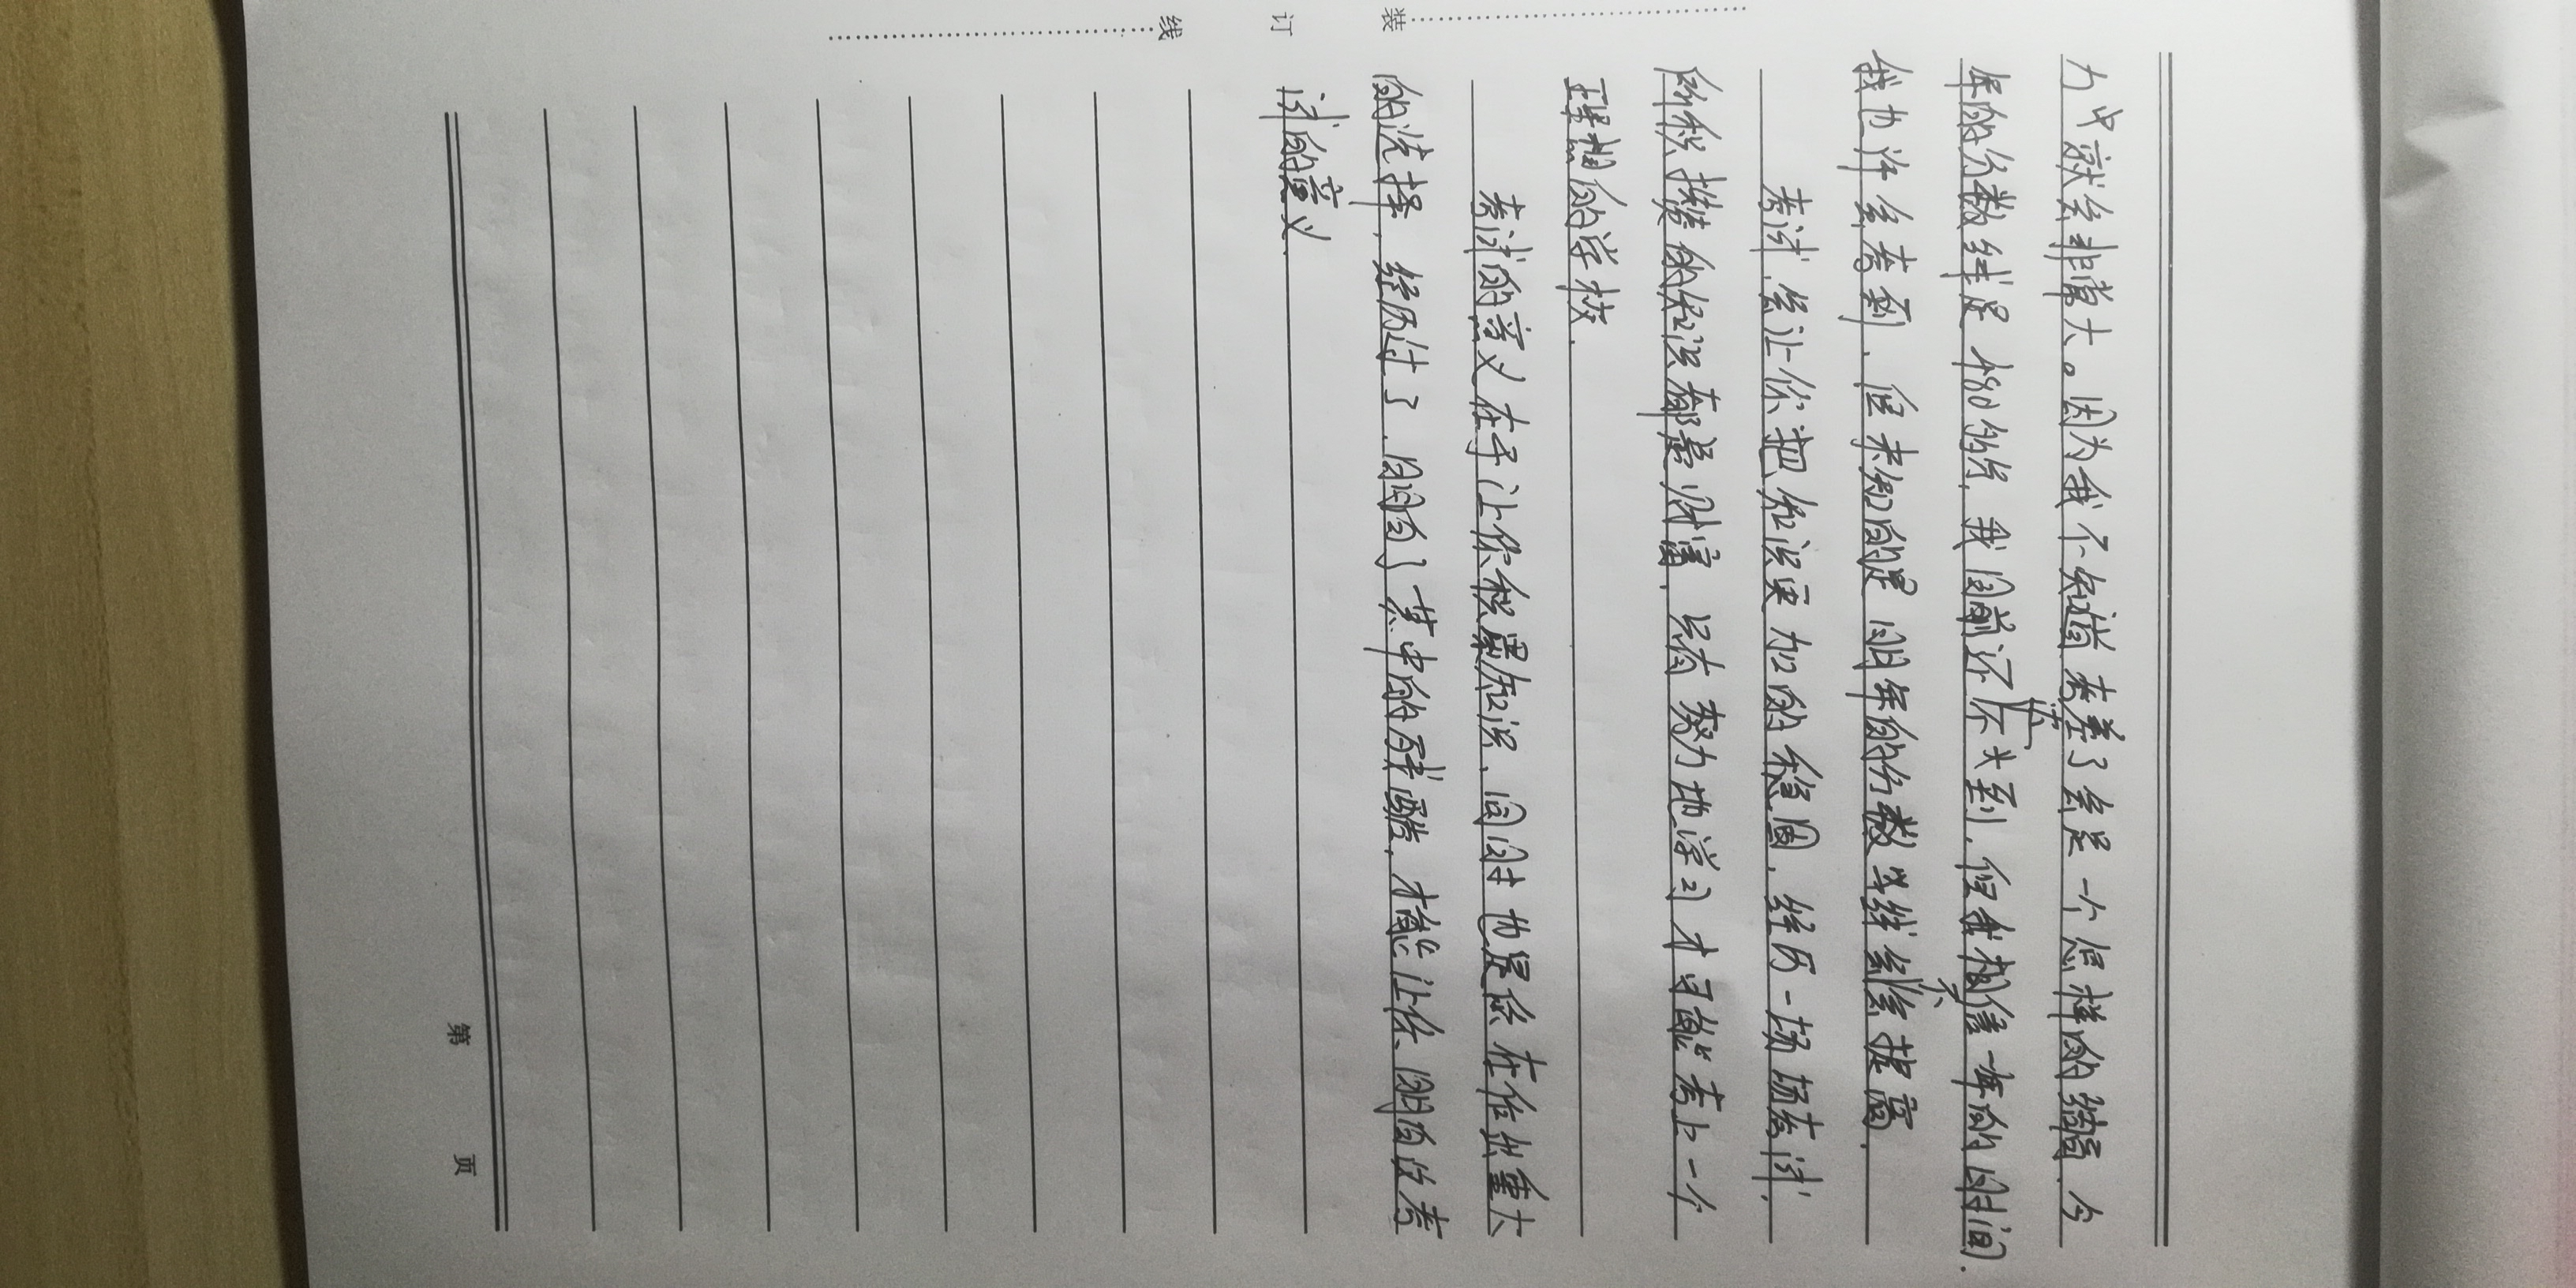 装 订 线
力中就会非常大。因为我不知道考差了会是一个怎样的结局,今
年的分数线是480的分,我目前还不关到,但我相信一年的时间,
我也许会考到,但未知的是明年的分数线会不会提高,
考试,会让你把知识更加的稳固,经历一场场考试,
所积攒的知识都是财富,只有努力地学习才可能考上一个
理想的学校.
考试的意义在于让你积累知识,同时也是你在作出重大
的选择,经历过了,明白了其中的残酷,才能让你明白次考
试的意义.
第 页